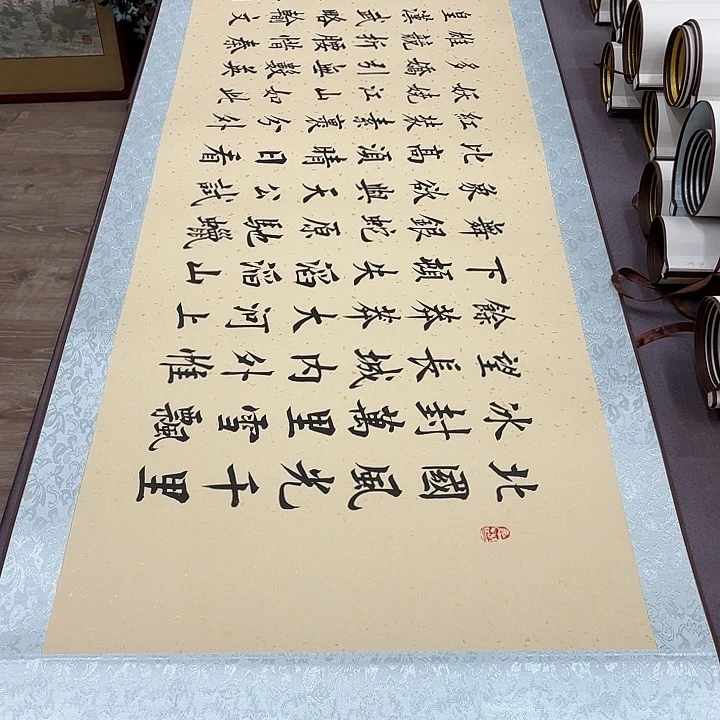 北國風光千里
冰封萬里雪飄
望長城內外惟
餘莽莽大河上
下頓失滔滔山
舞銀蛇原馳蠟
象欲與天公試
比高須晴日看
紅妝素裹分外
妖嬈江山如此
多嬌引無數英
雄競折腰惜秦
皇漢武略輸文